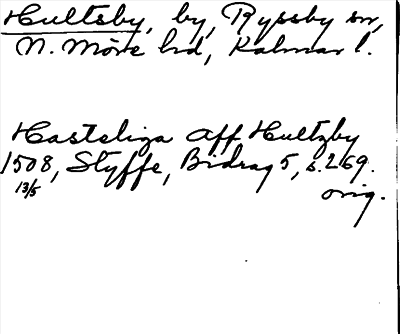 Hultsby, by, Ryssby sn,
N. Möre hd, Kalmar l.
Hasteliga aff Hultzby
1508, Styffe, Bidrag 5, s. 269.
13/5 orig.